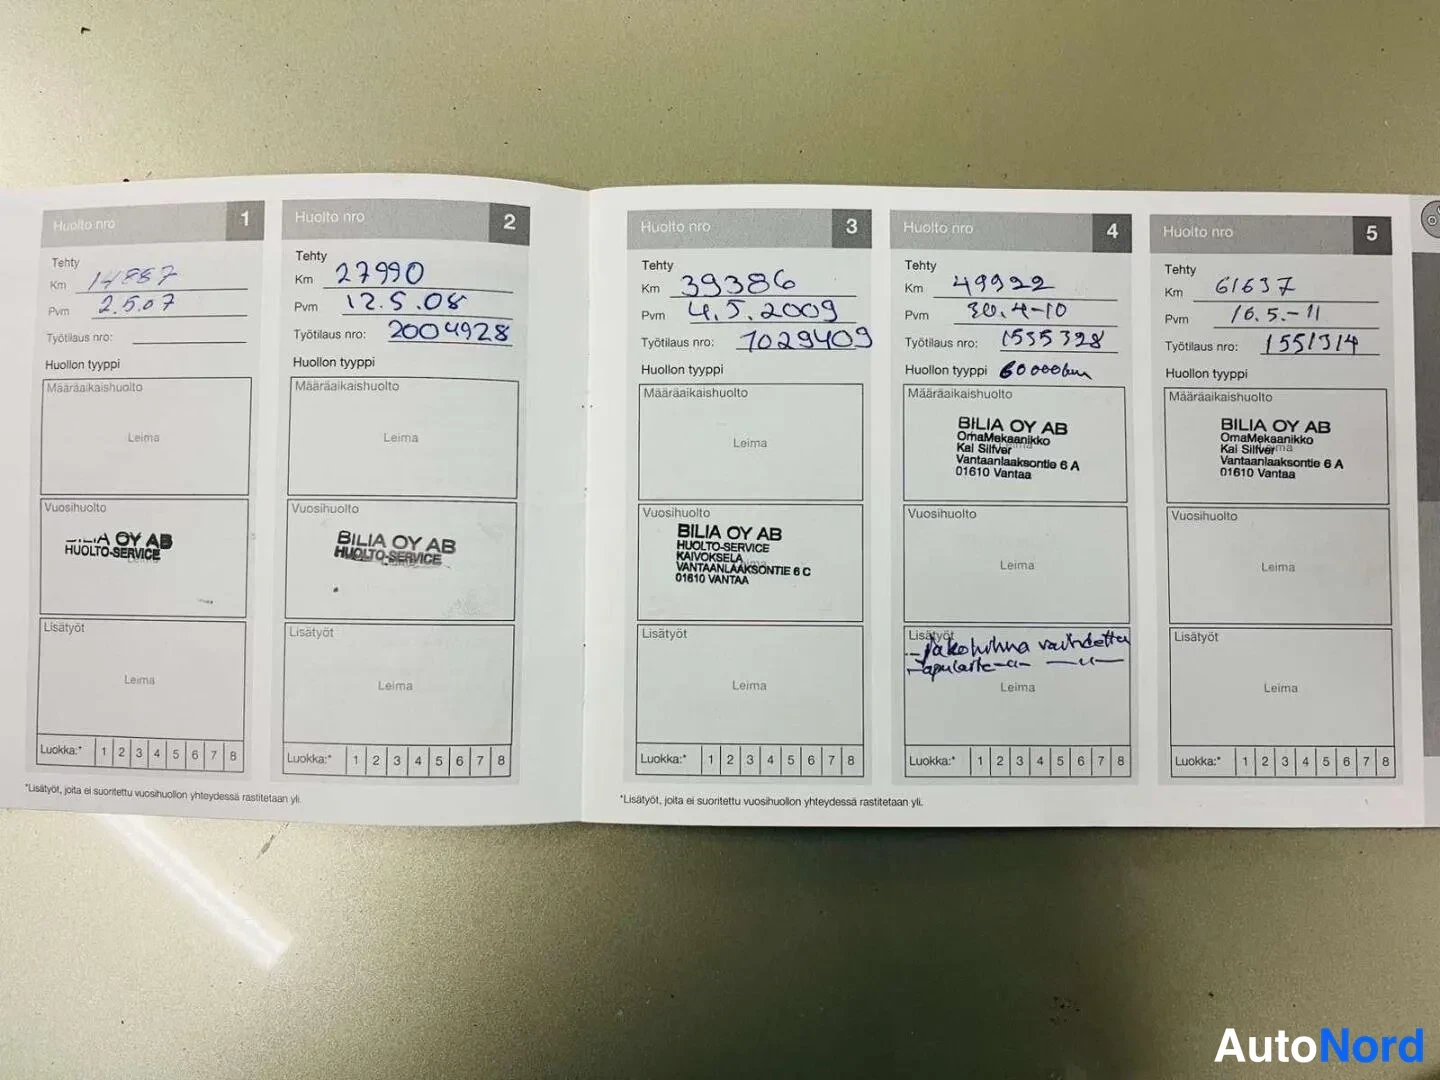 Huolto nro 1
Tehty
Km 14887
Pvm 2.5.07
Työtilaus nro:
Huollon tyyppi
Määräaikaishuolto
Leima
Vuosihuolto
OY AB
HUOLTO-SERVICE
Leima
Lisätyöt
Leima
Luokka:* 1 2 3 4 5 6 7 8
*Lisätyöt, joita ei suoritettu vuosihuollon yhteydessä rastitetaan yli.
Huolto nro 2
Tehty
Km 27990
Pvm 12.5.08
Työtilaus nro: 2004928
Huollon tyyppi
Määräaikaishuolto
Leima
Vuosihuolto
BILIA OY AB
HUOLTO-SERVICE
Lisätyöt
Leima
Luokka:* 1 2 3 4 5 6 7 8
Huolto nro 3
Tehty
Km 39386
Pvm 4.5.2009
Työtilaus nro: 1029409
Huollon tyyppi
Määräaikaishuolto
Leima
Vuosihuolto
BILIA OY AB
HUOLTO-SERVICE
KAIVOKSELA
VANTAANLAAKSONTIE 6 C
01610 VANTAA
Lisätyöt
Leima
Luokka:* 1 2 3 4 5 6 7 8
*Lisätyöt, joita ei suoritettu vuosihuollon yhteydessä rastitetaan yli.
Huolto nro 4
Tehty
Km 49922
Pvm 30.4-10
Työtilaus nro: 1535328
Huollon tyyppi 60000km
Määräaikaishuolto
BILIA OY AB
OmaMekaanikko
Kai Silfver
Vantaanlaaksontie 6 A
01610 Vantaa
Vuosihuolto
Leima
Lisätyöt
- Jakohihna vaihdettu
Leima
Luokka:* 1 2 3 4 5 6 7 8
Huolto nro 5
Tehty
Km 61637
Pvm 16.5.-11
Työtilaus nro: 1551314
Huollon tyyppi
Määräaikaishuolto
BILIA OY AB
OmaMekaanikko
Kai Silfver
Vantaanlaaksontie 6 A
01610 Vantaa
Vuosihuolto
Leima
Lisätyöt
Leima
Luokka:* 1 2 3 4 5 6 7 8
AutoNord